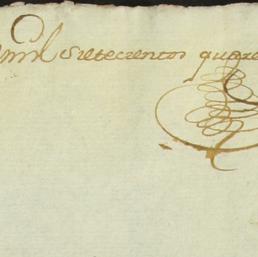 mil Setecientos quare